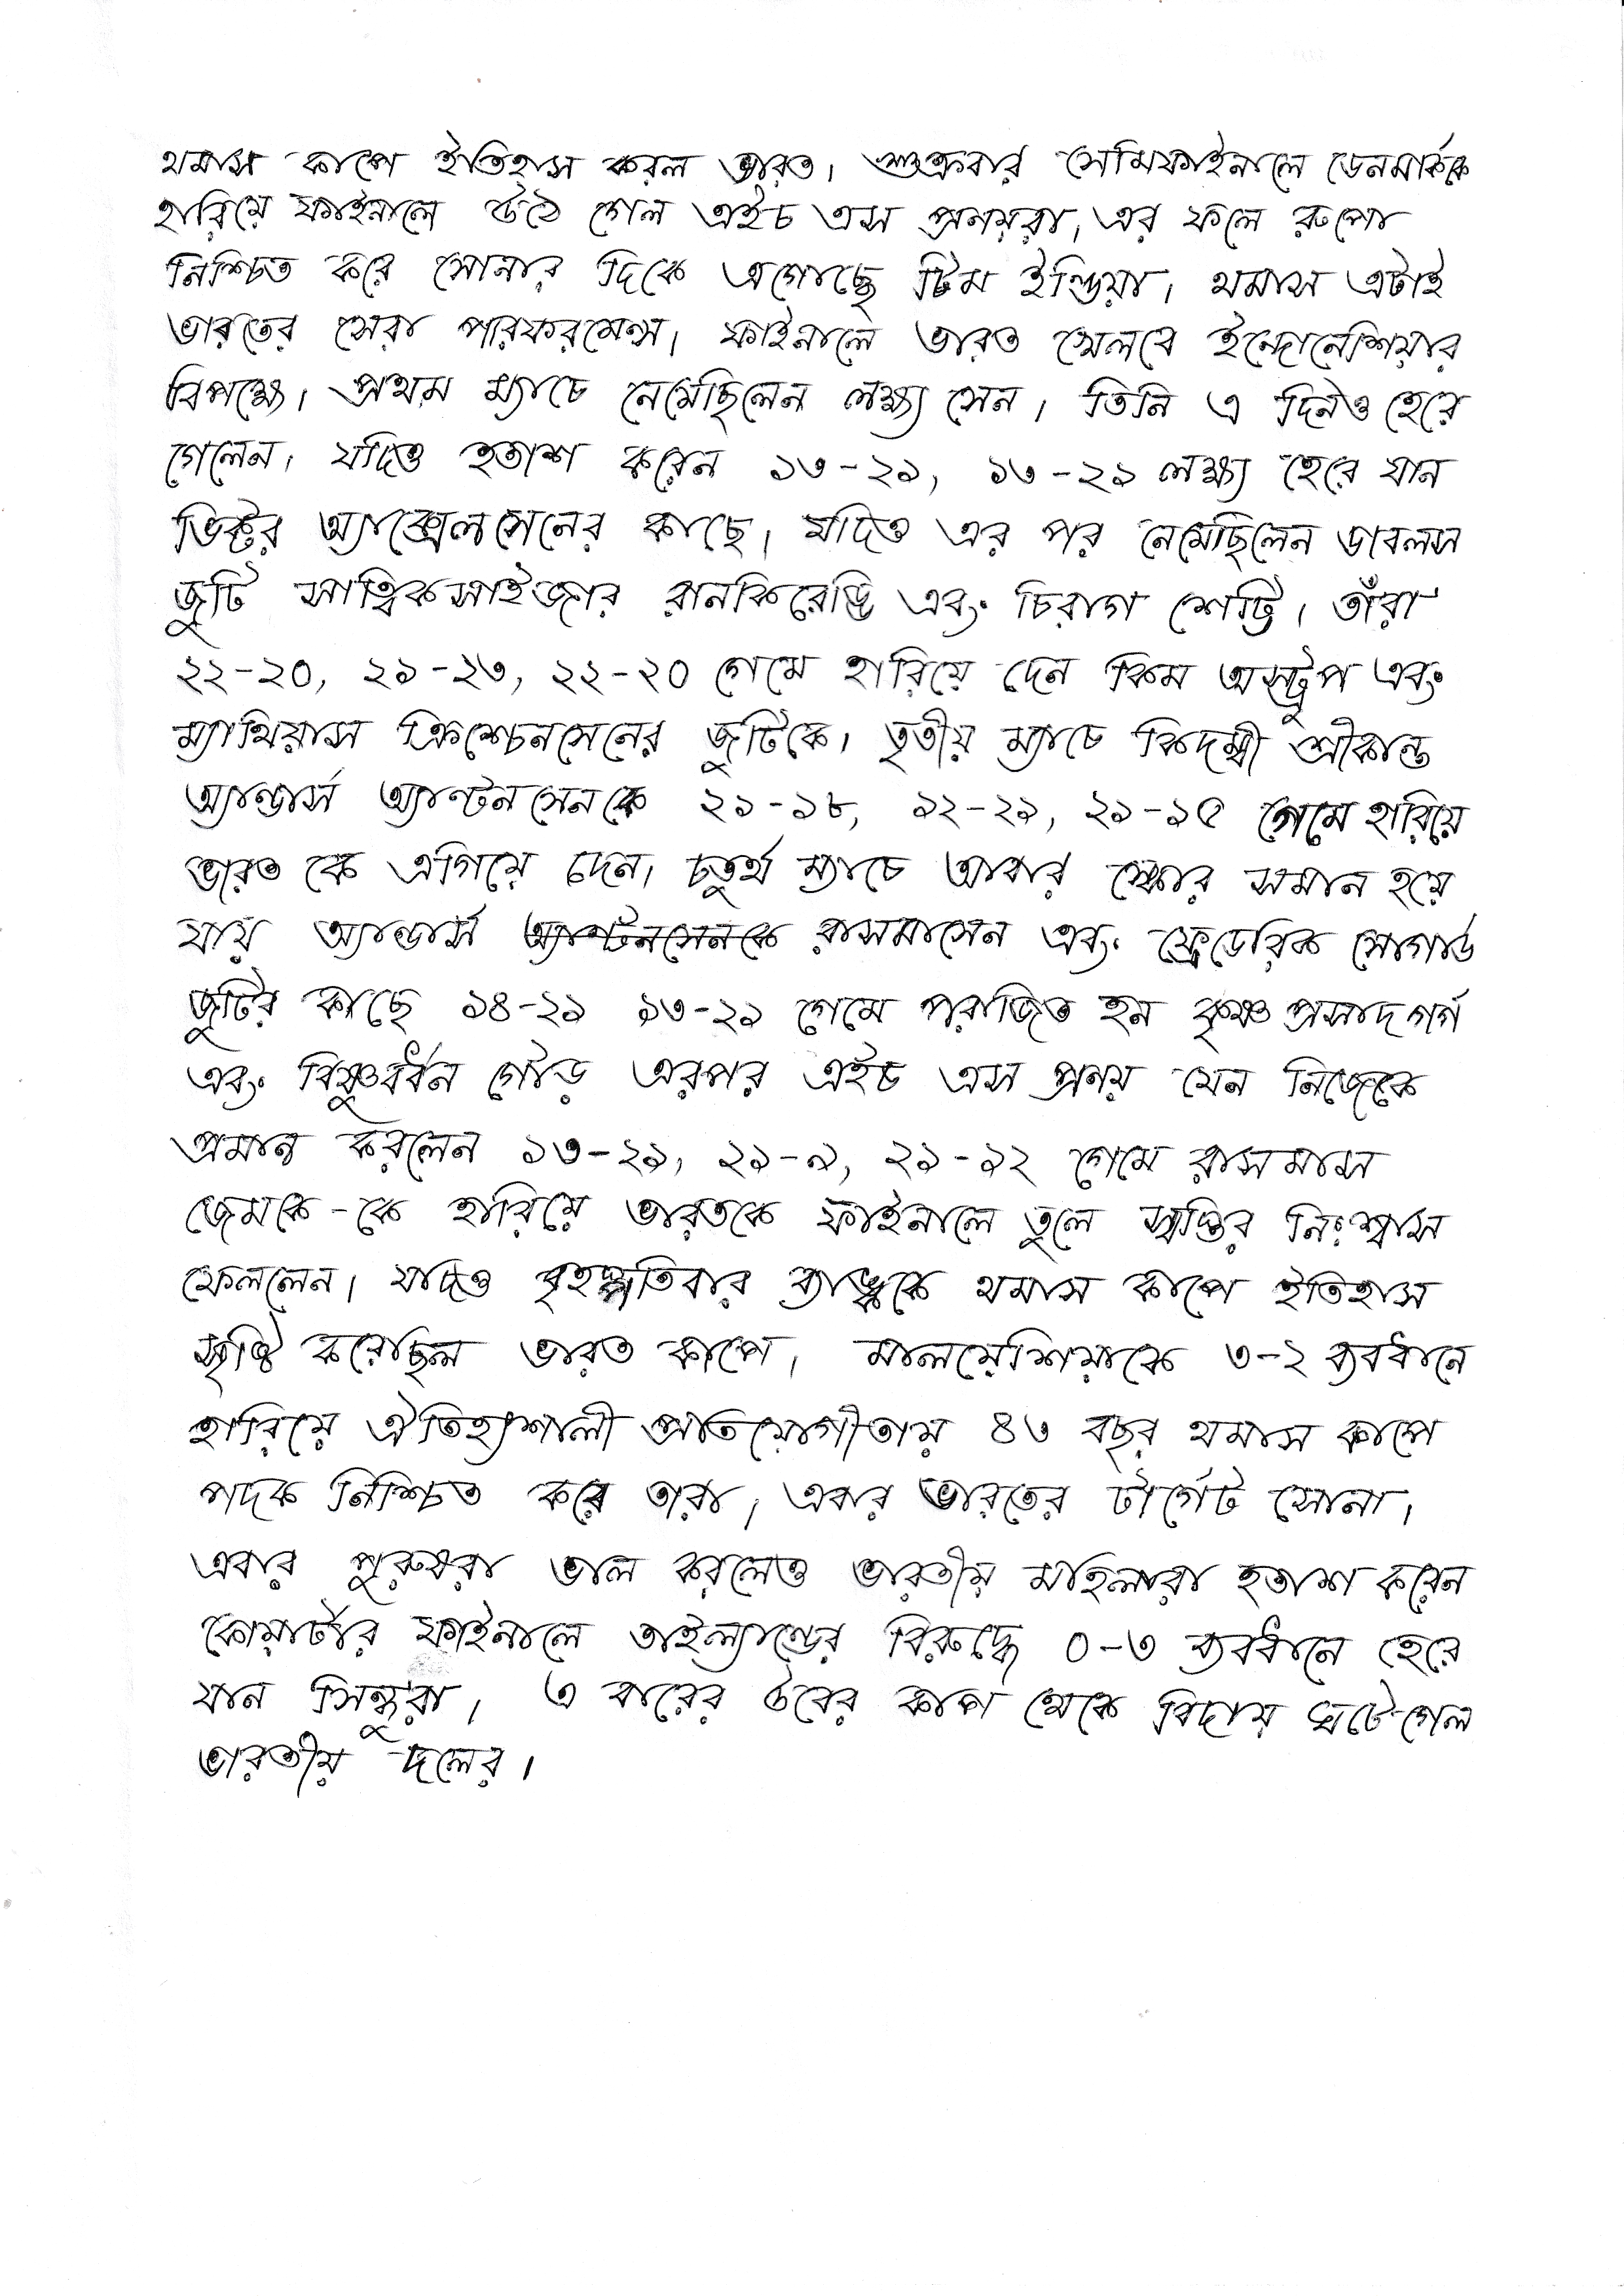 থমাস কাপে ইতিহাস করল ভারত। শুক্রবার সেমিফাইনালে ডেনমার্ককে
হারিয়ে ফাইনালে উঠে গেল এইচ এস প্রনয়রা, এর ফলে রুপো
নিশ্চিত করে সোনার দিকে এগোচ্ছে টিম ইন্ডিয়া। থমাস এটাই
ভারতের সেরা পারফরমেন্স। ফাইনালে ভারত খেলবে ইন্দোনেশিয়ার
বিপক্ষে। প্রথম ম্যাচে নেমেছিলেন লক্ষ্য সেন। তিনি এ দিনও হেরে
গেলেন। যদিও হতাশ করেন ১৩-২১, ১৩-২১ লক্ষ্য হেরে যান
ভিক্টর অ্যাক্সেলসেনের কাছে। যদিও এর পর নেমেছিলেন ডাবলস
জুটি সাত্ত্বিকসাইজার রানকিরেড্ডি এবং চিরাগ শেট্টি। তাঁরা
২২-২০, ২১-২৩, ২২-২০ গেমে হারিয়ে দেন কিম অস্ট্রুপ এবং
ম্যাথিয়াস ক্রিশ্চেনসেনের জুটিকে। তৃতীয় ম্যাচে কিদম্বী শ্রীকান্ত
অ্যান্ডার্স অ্যান্টনসেনকে ২১-১৮, ১২-২১, ২১-১৫ গেমে হারিয়ে
ভারত কে এগিয়ে দেন। চতুর্থ ম্যাচে আবার স্কোর সমান হয়ে
যায় অ্যান্ডার্স রাসমাসেন এবং ফ্রেডেরিক সোগার্ড
জুটির কাছে ১৪-২১ ১৩-২১ গেমে পরাজিত হন কৃষ্ণ প্রসাদ গর্গ
এবং বিষ্ণুবর্ধন গৌড় এরপর এইচ এস প্রনয় যেন নিজেকে
প্রমান করলেন ১৩-২১, ২১-৯, ২১-১২ গেমে রাসমাস
জেমকে-কে হারিয়ে ভারতকে ফাইনালে তুলে স্বস্তির নিঃশ্বাস
ফেললেন। যদিও বৃহস্পতিবার ব্যাঙ্ককে থমাস কাপে ইতিহাস
সৃষ্টি করেছিল ভারত কাপে। মালয়েশিয়াকে ৩-২ ব্যবধানে
হারিয়ে ঐতিহ্যশালী প্রতিযোগীতায় ৪৩ বছর থমাস কাপে
পদক নিশ্চিত করে তারা। এবার ভারতের টার্গেট সোনা।
এবার পুরুষরা ভাল করলেও ভারতীয় মহিলারা হতাশ করেন
কোয়ার্টার ফাইনালে তাইল্যান্ডের বিরুদ্ধে ০-৩ ব্যবধানে হেরে
যান সিন্ধুরা। এ বারের উবের কাপ থেকে বিদায় ঘটে গেল
ভারতীয় দলের।